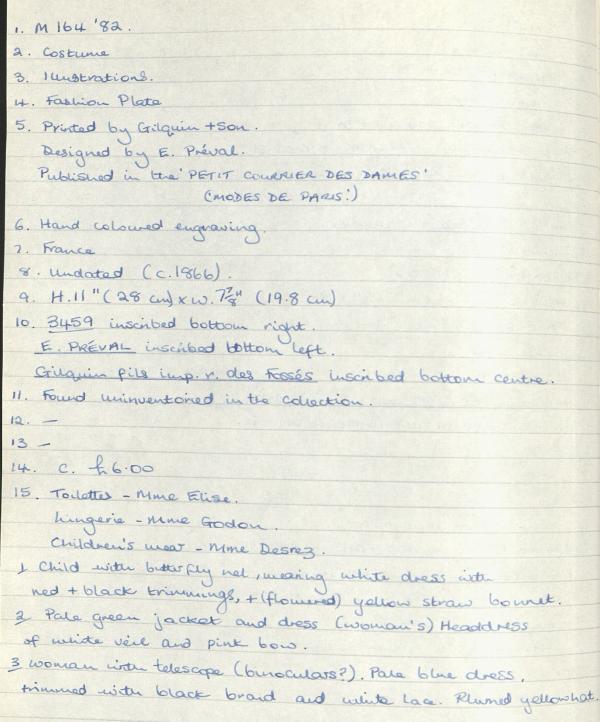 1. M 164 '82.
2. Costume
3. Illustrations.
4. Fashion Plate
5. Printed by Gilquin + Son.
Designed by E. Préval.
Published in the 'PETIT COURRIER DES DAMES'
(MODES DE PARIS.)
6. Hand coloured engraving.
7. France
8. Undated (c.1866).
9. H.11" (28 cm) x W. 7⅞" (19.8 cm)
10. 3459 inscribed bottom right.
E. PRÉVAL inscribed bottom left.
Gilquin fils imp. r. des Fossés inscribed bottom centre.
11. Found uninventoried in the collection.
12. —
13 —
14. c. £6.00
15. Toilettes - Mme Elise.
Lingerie - Mme Godon.
Children's wear - Mme Desrez.
1 Child with butterfly net, wearing white dress with
red + black trimmings, + (flowered) yellow straw bonnet.
2 Pale green jacket and dress (woman's) Headdress
of white veil and pink bow.
3 woman with telescope (binoculars?). Pale blue dress,
trimmed with black braid and white lace. Plumed yellow hat.